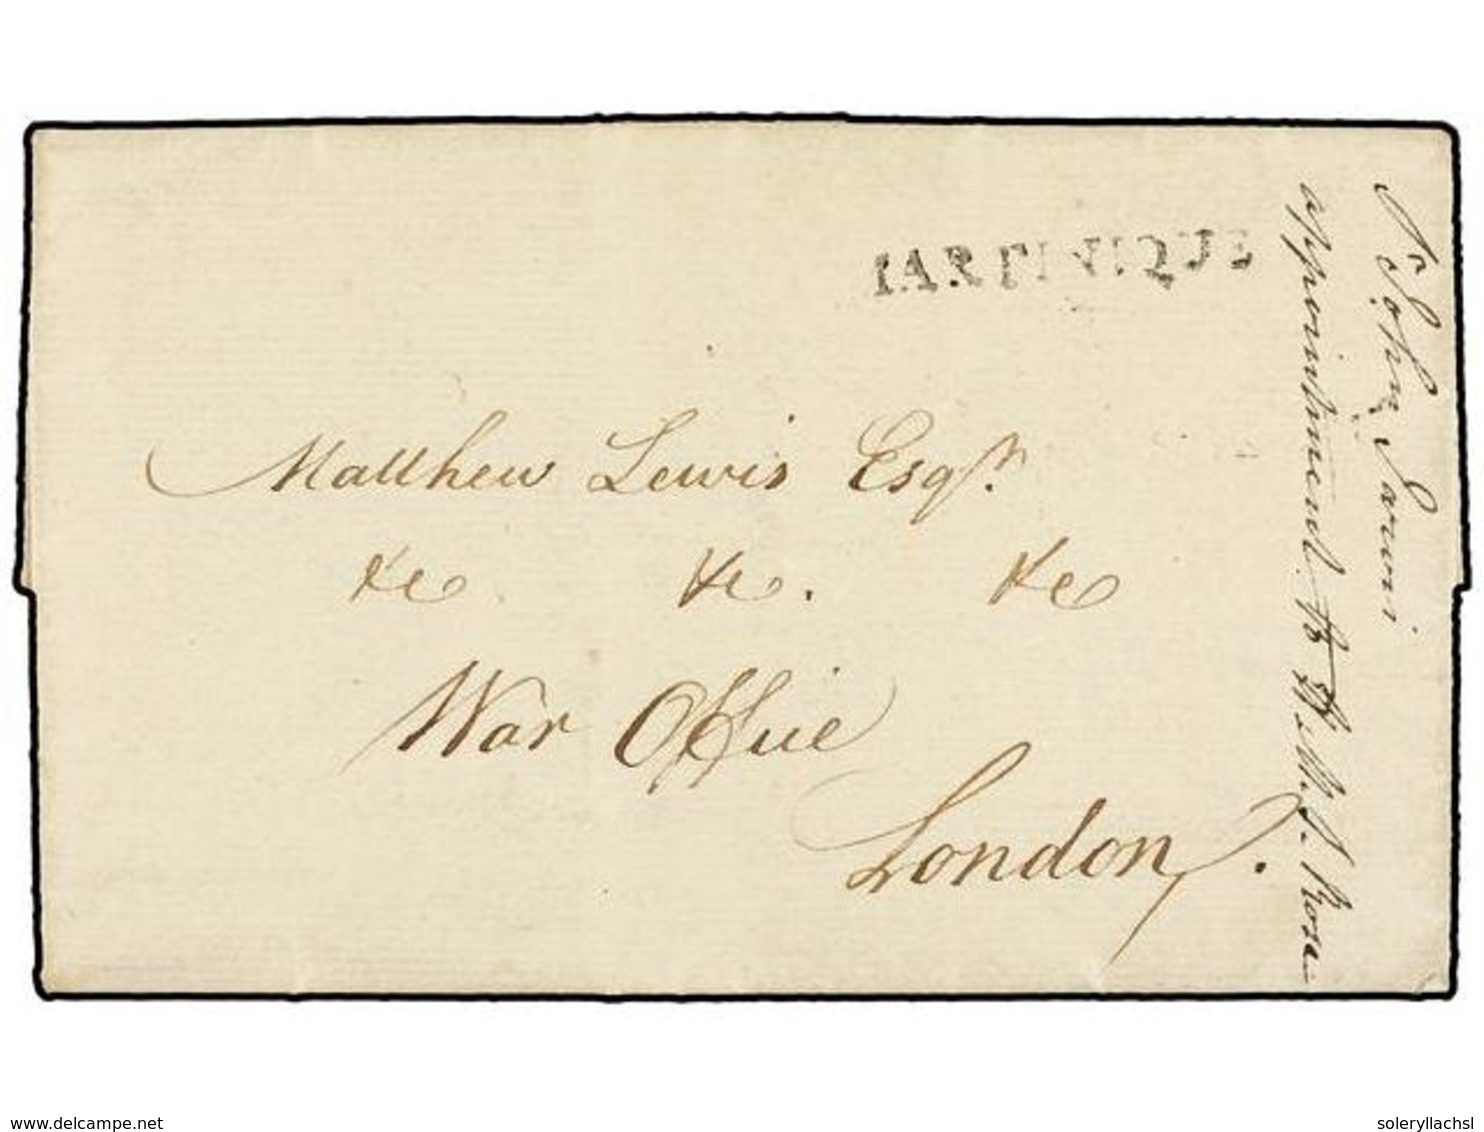 MARTINIQUE
Matthew Lewis Esqr.
&c &c. &c
War Office
London.
Sr John
appointment
www.delcampe.net
soleryllachsl